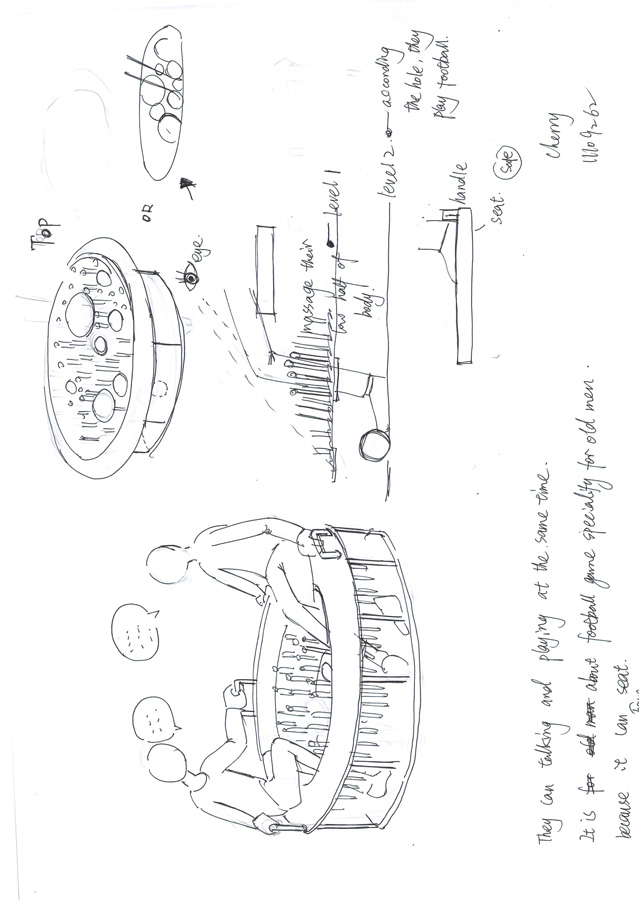 TOP
OR
eye.
massage their
low half of
body.
level 1
level 2.
according
the hole, they
play football.
handle
seat.
safe
Cherry
They can talking and playing at the same time.
It is for old man about football game speciality for old men.
because it can seat.